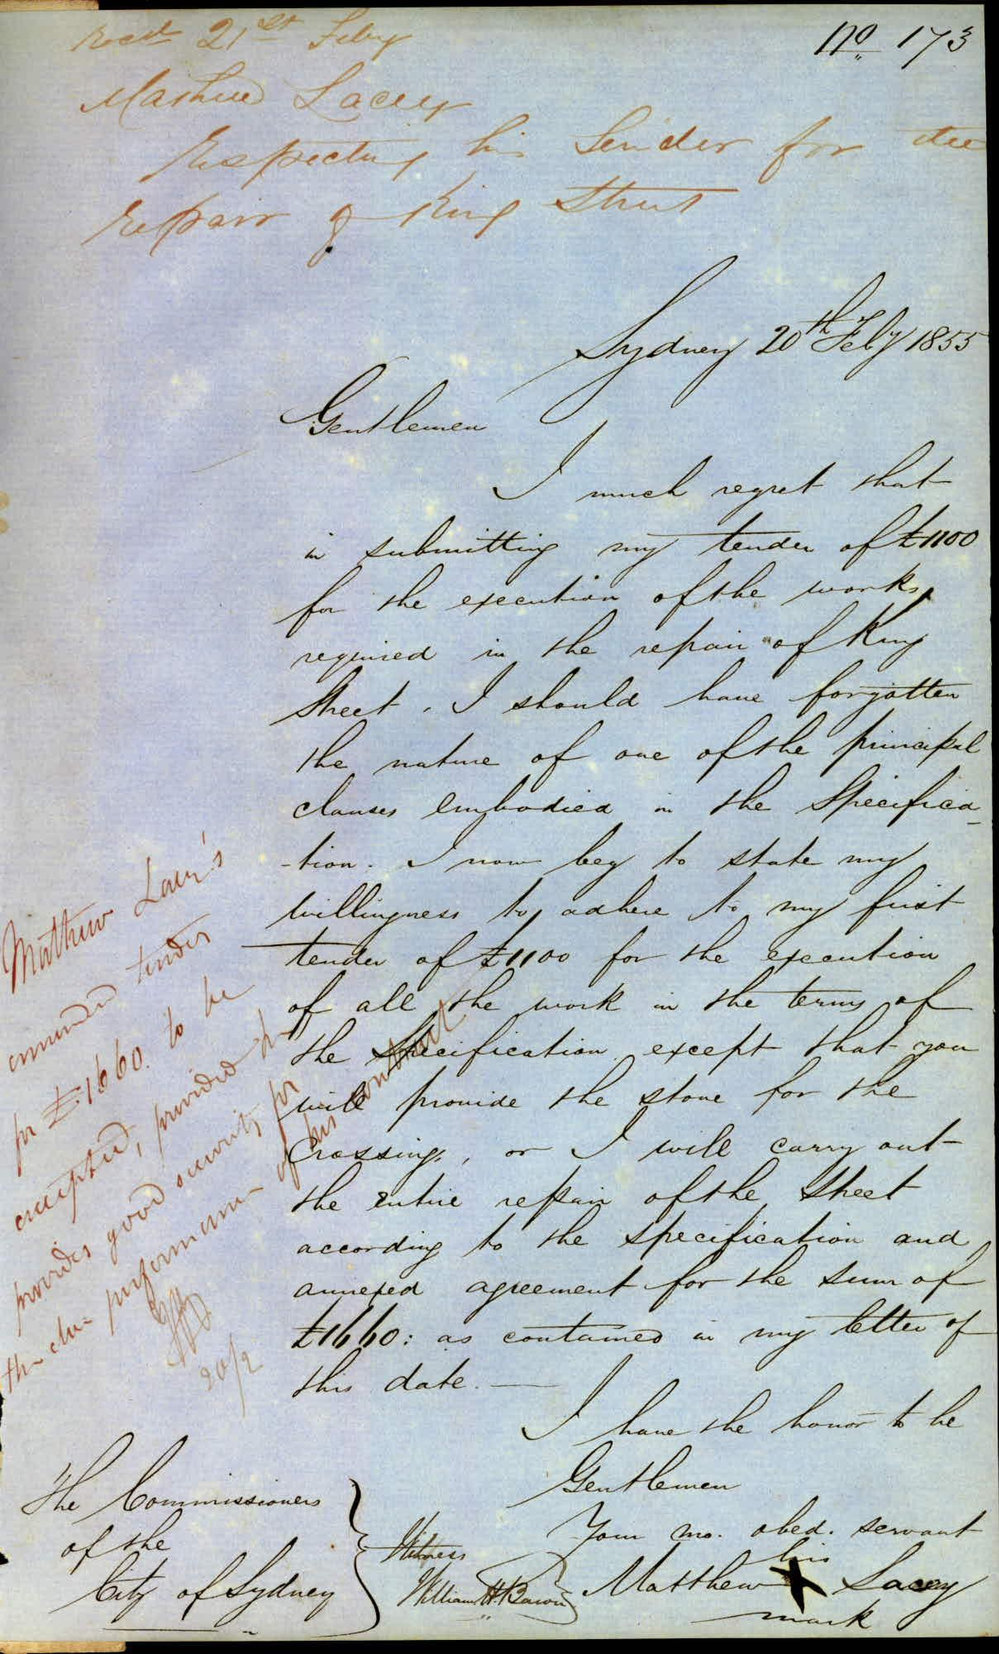 Recd 21st Feby
No 173
Mathew Lacey
Respecting his Tender for the
repair of King Street
Sydney 20th Feby 1855
Gentlemen
I much regret that
in submitting my tender of £1100
for the execution of the works
required in the repair of King
Street, I should have forgotten
the nature of one of the principal
clauses embodied in the Specifica
-tion. I now beg to state my
willingness to adhere to my first
tender of £1100 for the execution
of all the work in the terms of
the Specification except that you
will provide the stone for the
Crossings, or I will carry out
the entire repair of the Street
according to the specification and
annexed agreement for the sum of
£1660: as contained in my letter of
this date.—
I have the honor to be
Gentlemen
Your mo. obed. servant
his
Matthew X Lacey
mark
Witness
William H. 
The Commissioners
of the
City of Sydney
Matthew Lacey's
amended tender
for £1660. to be
accepted, provided he
provides good security for
the due performance of his contract
20/2